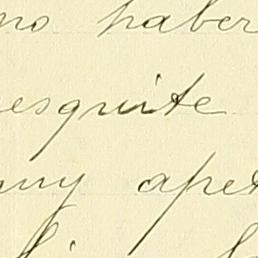 no haber
esquite
any apet